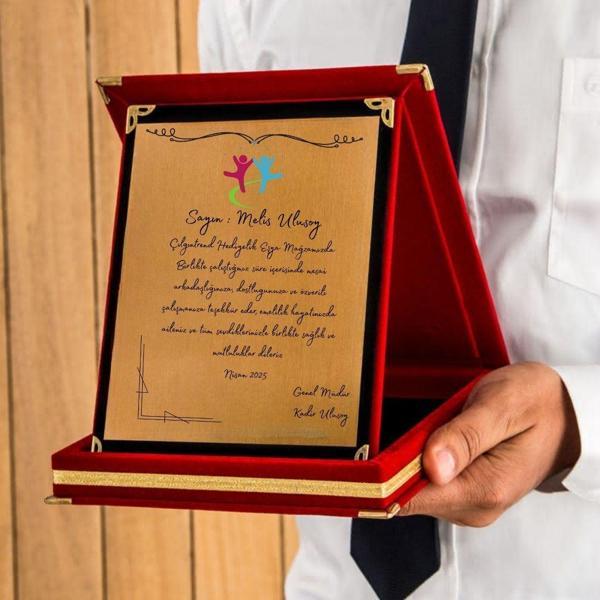 Sayın : Melis Ulusoy
Çılgıntrend Hediyelik Eşya Mağzamızda
Birlikte çalıştığmız süre içerisinde mesai
arkadaşlığınıza, dostluğunuza ve özverili
çalışmanıza teşekkür eder, emelilik hayatınızda
aileniz ve tüm sevdiklerinizle birlikte sağlık ve
mutluluklar dileriz
Nisan 2025
Genel Müdür
Kadir Ulusoy